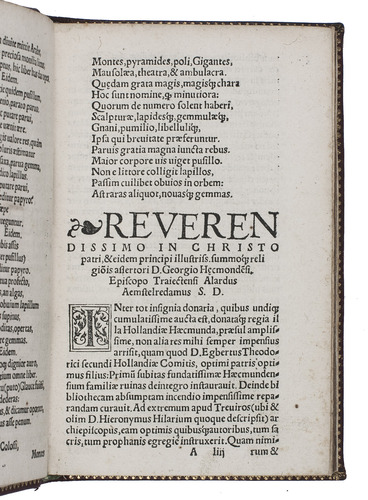 Montes, pyramides, poli, Gigantes,
Mausolæa, theatra, & ambulacra.
Quędam grata magis, magisq́; chara
Hoc sunt nomine, q̃ minutiora:
Quorum de numero solent haberi,
Scalpturæ, lapidesq́;, gemmulæq́;,
Gnani, pumilio, libelluliq́;,
Ipsa qui breuitate præferuntur.
Paruis gratia magna iuncta rebus.
Maior corpore uis uiget pusillo.
Non e littore colligit lapillos,
Passim cuilibet obuios in orbem:
Ast raras aliquot, nouasq́; gemmas.
REVEREN
DISSIMO IN CHRISTO
patri, & eidem principi illustriss. summosq́; reli
giōis assertori D. Georgio Hęcmondēsi,
Episcopo Traiectēsi Alardus
Aemstelredamus S. D.
INter tot insignia donaria, quibus undiq́;
cumulatissime aucta est, donatasq́; regia il
la Hollandiæ Hæcmunda, præsul amplissi
me, non alia res mihi semper impensius
arrisit, quam quod D. Egbertus Theodo-
rici secundi Hollandiæ Comitis, optimi patris opti
mus filius: Primū subitas fundatissimæ Hæcmunderia
sium familiæ ruinas deintegro instaurauit. Deinde bi
bliothecam absumptam incendio impensissime repa-
randam curauit. Ad extremum apud Treuiros (ubi &
olim D. Hieronymus Hilarium quoque descripsit) ar
chiepiscopus, eam optimis quibusq́; autoribus, tum sa
cris, tum prophanis egregie instruxerit. Quam nimi-
A iiij rum &
diuine mitrit Aralis
Eidem.
Eidem.
papyro
gemmæ,
Eidem.
opertum,
Eidem.
Colossi,
Montes